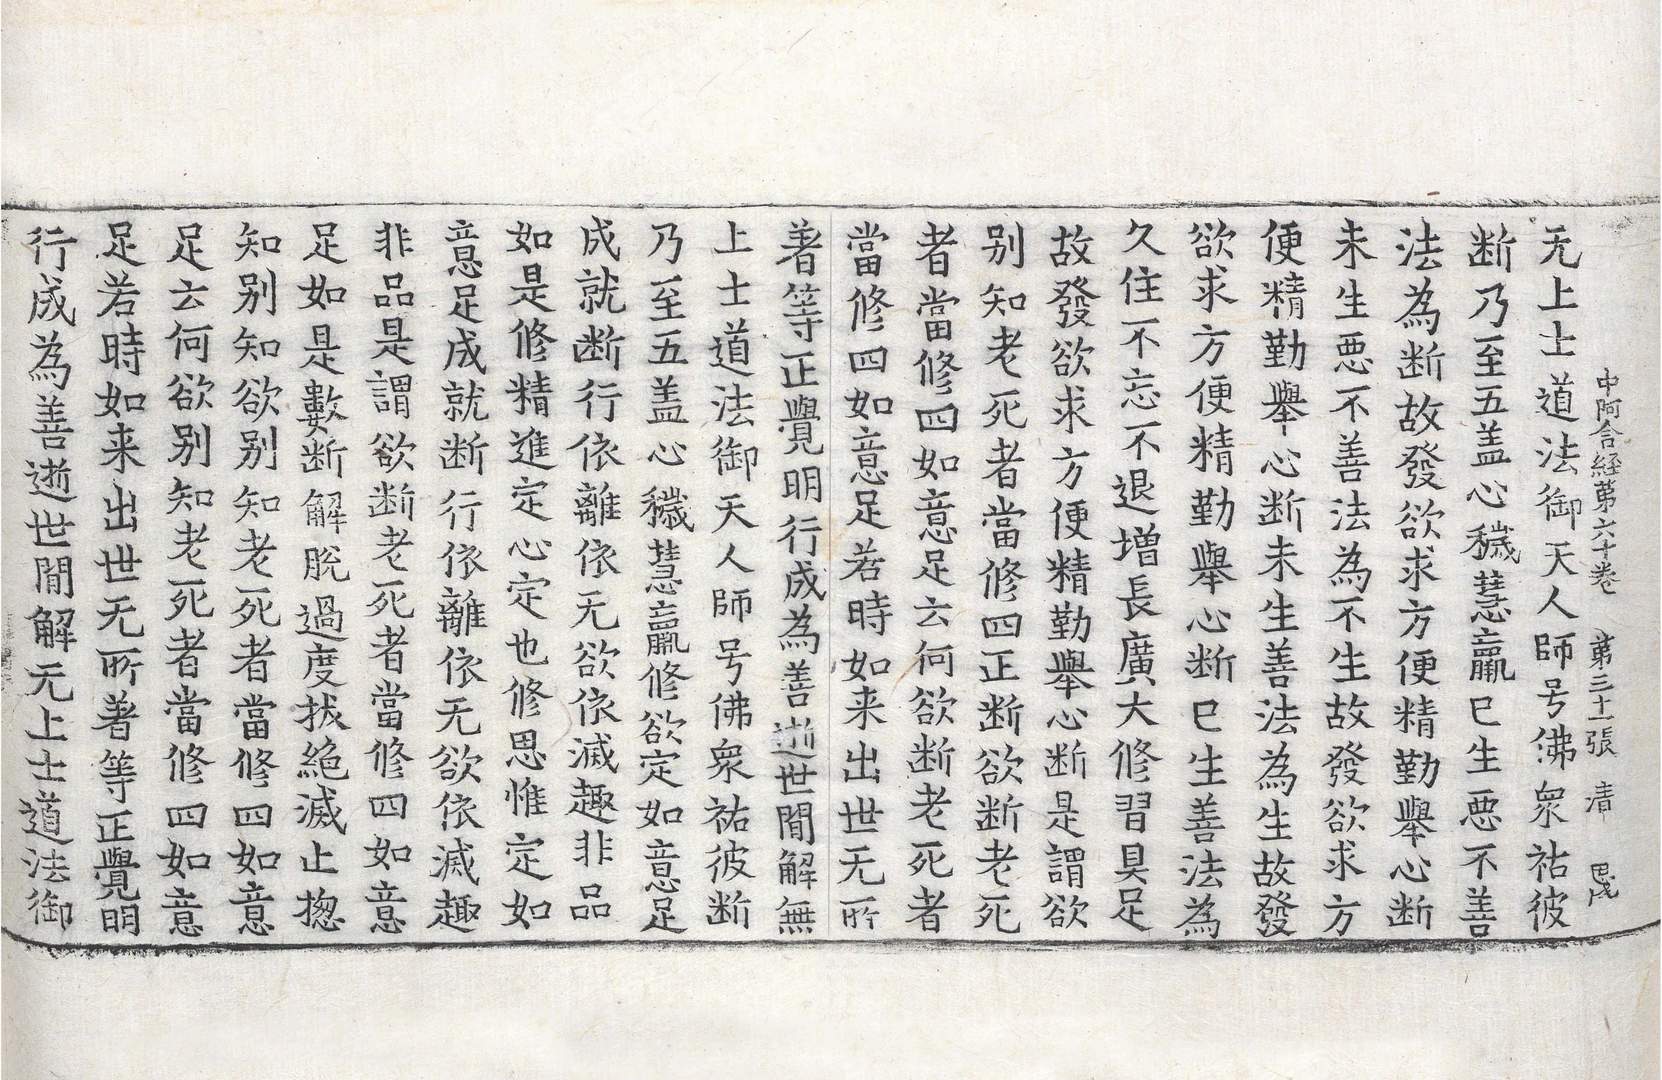 中阿含経苐六十卷 苐三十一張 清
无上士道法御天人師号佛衆祐彼
断乃至五盖心穢慧羸已生悪不善
法為断故發欲求方便精勤舉心断
未生悪不善法為不生故發欲求方
便精勤舉心断未生善法為生故發
欲求方便精勤舉心断已生善法為
久住不忘不退増長廣大修習具足
故發欲求方便精勤舉心断是謂欲
别知老死者當修四正断欲断老死
者當修四如意足云何欲断老死者
當修四如意足若時如来出世无所
著等正覺明行成為善逝世間解無
上士道法御天人師号佛衆祐彼断
乃至五盖心穢慧羸修欲定如意足
成就断行依離依无欲依滅趣非品
如是修精進定心定也修思惟定如
意足成就断行依離依无欲依滅趣
非品是謂欲断老死者當修四如意
足如是數断解脫過度拔絶滅止揔
知别知欲别知老死者當修四如意
足云何欲别知老死者當修四如意
足若時如来出世无所著等正覺明
行成為善逝世間解无上士道法御